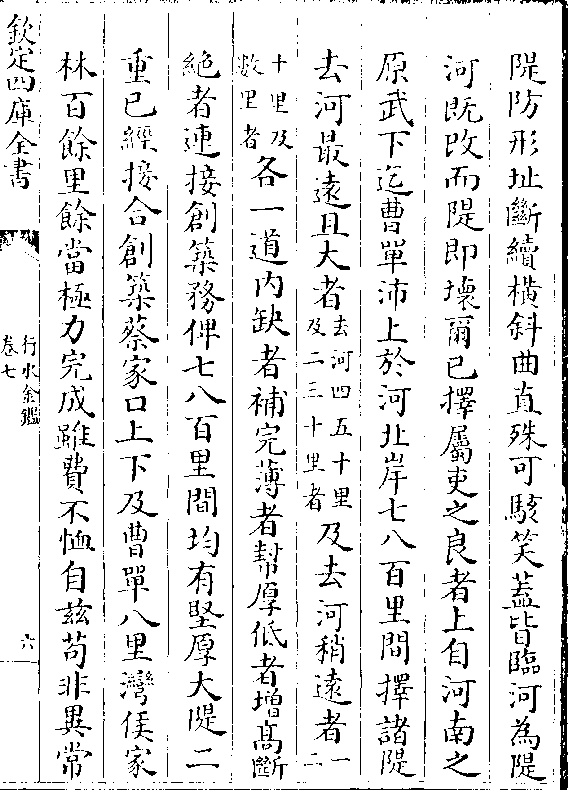 隄防形址斷續橫斜曲直殊可駭笑蓋皆臨河為隄
河既改而隄即壞爾已擇屬吏之良者上自河南之
原武下迄曹單沛上於河北岸七八百里間擇諸隄
去河最遠且大者去河四五十里及二三十里者及去河稍遠者一二
十里及數里者各一道内缺者補完薄者幫厚低者増髙斷
絶者連接創築務俾七八百里間均有堅厚大隄二
重已經接合創築蔡家口上下及曹單八里灣侯家
林百餘里餘當極力完成雖費不恤自兹苟非異常
欽定四庫全書
行水金鑑
卷七
六